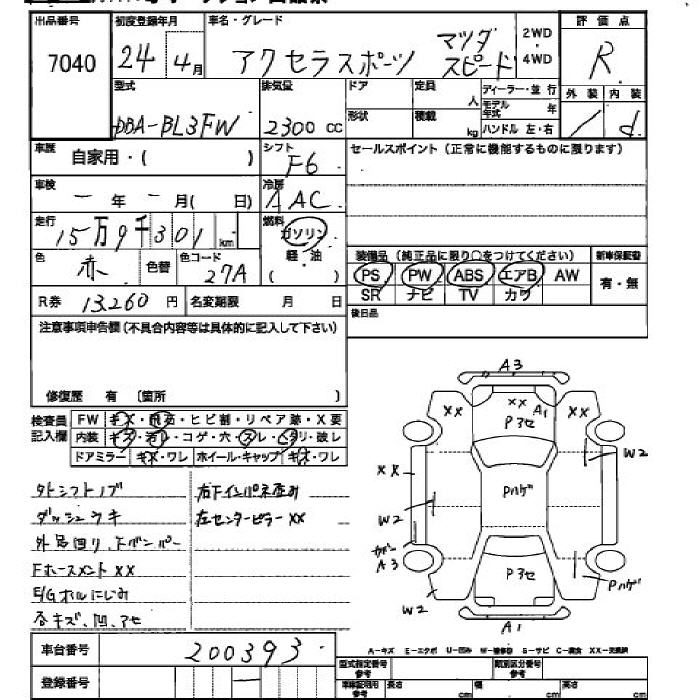 出品番号 初度登録年月 車名・グレード 評価点
7040 24年 4月 アクセラスポーツ マツダスピード 2WD・4WD R
型式 排気量 ドア 定員 人 ディーラー・並行 外装 内装
DBA-BL3FW 2300 cc 形状 積載 kg モデル年式 年 ハンドル 左・右 / d
車歴 自家用・( ) シフト F6 セールスポイント (正常に機能するものに限ります)
車検 ー年ー月( 日) 冷房 AAC
走行 15万9千301 km 燃料 ガソリン 軽・油 ( )
色 赤 色替 色コード 27A
装備品 (純正品に限り○をつけてください) 新車保証書
PS PW ABS エアB AW 有・無
SR ナビ TV カワ
R券 13,260 円 名変期限 月 日
後日品
注意事項申告欄(不具合内容等は具体的に記入して下さい)
修復歴 有 〔箇所 〕
検査員記入欄 FW キズ・飛石・ヒビ割・リペア跡・X要
内装 キズ・汚レ・コゲ・穴・スレ・ヘタリ・破レ
ドアミラー キズ・ワレ ホイール・キャップ キズ・ワレ
タトシフトノブ 右Fインパネ歪み
ダッシュウキ 左センターピラーXX
外品回り、下バンパー
FホースメントXX
E/Gオルにじみ
各キズ、凹、アセ
A3
XX XX A1 XX
P3セ
W2
XX
Pハゲ
W2
A3
P3セ
Pハゲ
W2
A1
A-キズ E-エクボ U-凹み W-補修跡 S-サビ C-腐食 XX-交換済
車台番号 200393
登録番号
型式指定番号 参考 類別区分番号 参考
車検証明用 参考 長さ cm 幅 cm 高さ cm